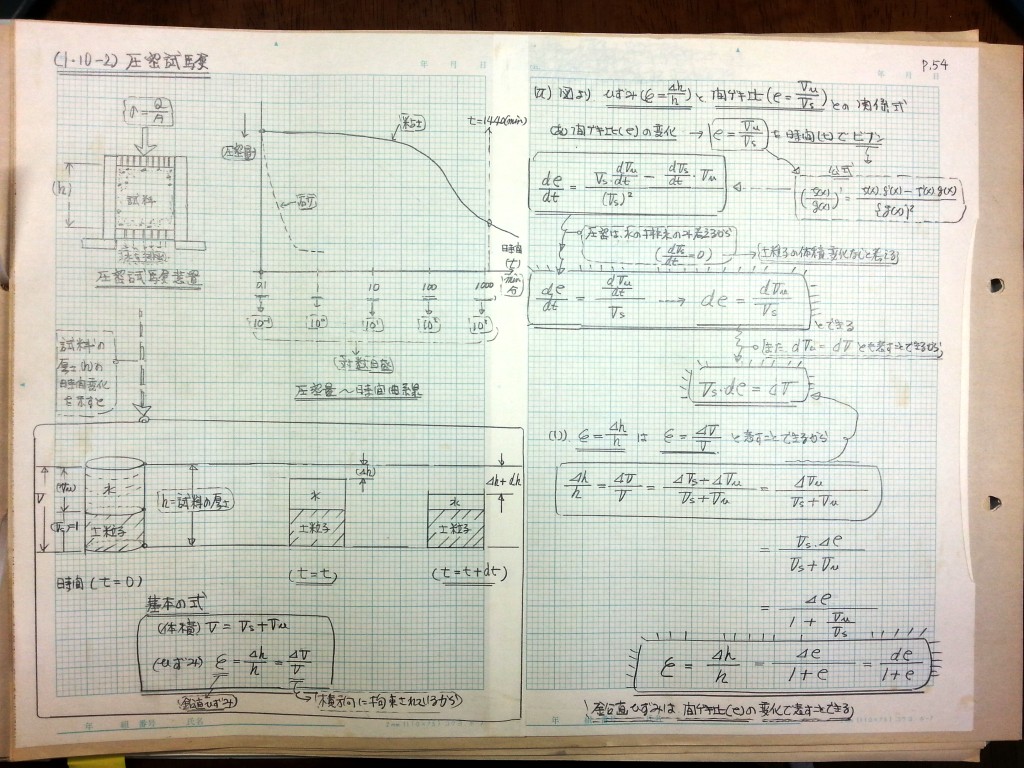 (1·10-2) 圧密試験
P.54
年 月 日
σ = Q/A
(h)
試料
圧密試験装置
圧密量
粘土
砂
t=1440(min)
時間
(t)
min
分
0.1 1 10 100 1000
(10⁻¹) (10⁰) (10¹) (10²) (10³)
(対数目盛)
圧密量〜時間曲線
試料の
厚さ(h)の
時間変化
を示すと
V
(Vu)
水
(Vs=1)
土粒子
h=試料の厚さ
(Δh)
水
土粒子
Δh+dh
水
土粒子
時間 (t=0)
(t=t)
(t=t+dt)
基本の式
(体積) V = Vs+Vu
(ひずみ) ε = Δh/h = ΔV/V
鉛直ひずみ
横方向に拘束されているから
年 組 番号 氏名
年 月 日
図より ひずみ(ε=Δh/h)と間ゲキ比(e=Vu/Vs)との関係式
間ゲキ比(e)の変化 → e=Vu/Vs を時間(t)でビブン
公式
(f(x)/g(x))' = f'(x)·g(x)−f(x)·g'(x)/{g(x)}²
de/dt = Vs·dVu/dt − dVs/dt·Vu/(Vs)²
圧密は、水の排水のみ考えるから
(dVs/dt=0) → 土粒子の体積変化なしと考える
de/dt = dVu/dt/Vs → de = dVu/Vs
とできる
また dVu = ΔV とも表すことできるから
Vs·de = ΔV
ε = Δh/h は ε = ΔV/V と表すことできるから
Δh/h = ΔV/V = ΔVs+ΔVu/Vs+Vu = ΔVu/Vs+Vu
= Vs·Δe/Vs+Vu
= Δe/1+Vu/Vs
ε = Δh/h = Δe/1+e = de/1+e
鉛直ひずみは 間ゲキ比(e)の変化で表すことできる